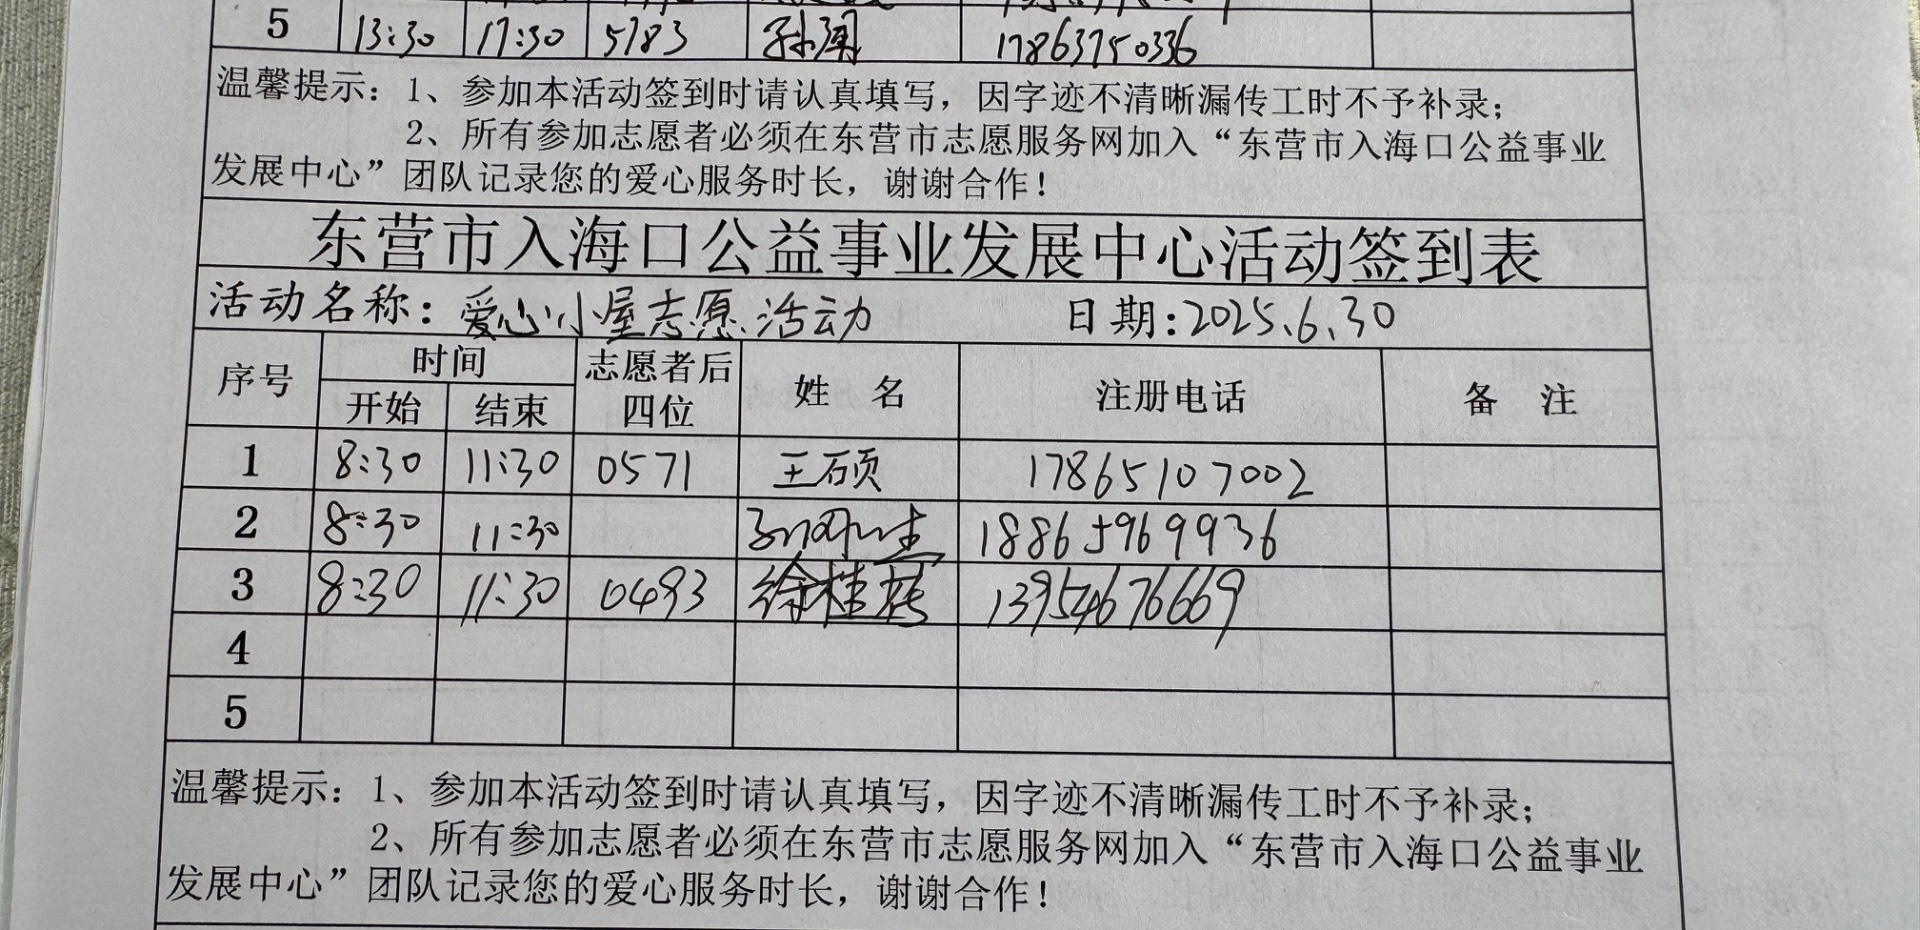 5 13:30 17:30 5783 孙涌 17863750336
温馨提示：1、参加本活动签到时请认真填写，因字迹不清晰漏传工时不予补录；
2、所有参加志愿者必须在东营市志愿服务网加入“东营市入海口公益事业
发展中心”团队记录您的爱心服务时长，谢谢合作！
东营市入海口公益事业发展中心活动签到表
活动名称：爱心小屋志愿活动 日期:2025.6.30
序号 时间 志愿者后四位 姓 名 注册电话 备 注
开始 结束
1 8:30 11:30 0571 王硕 17865107002
2 8:30 11:30 18865969936
3 8:30 11:30 0493 徐桂 13954676669
4
5
温馨提示：1、参加本活动签到时请认真填写，因字迹不清晰漏传工时不予补录；
2、所有参加志愿者必须在东营市志愿服务网加入“东营市入海口公益事业
发展中心”团队记录您的爱心服务时长，谢谢合作！